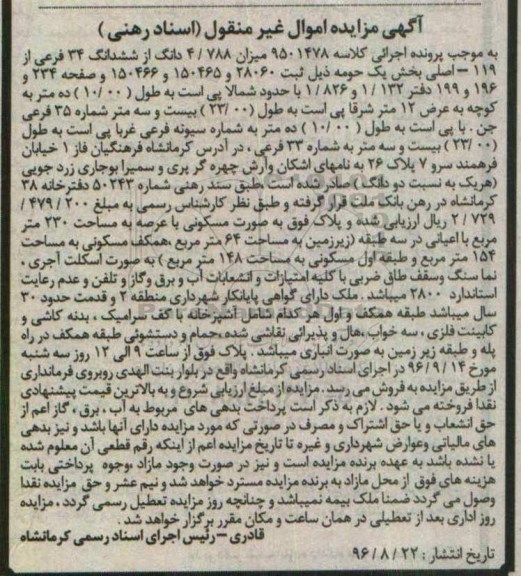 آگهی مزایده اموال غیر منقول (اسناد رهنی)
به موجب پرونده اجرائی کلاسه ۹۵۰۱۴۷۸ میزان ۴/۷۸۸ دانگ از ششدانگ ۳۴ فرعی از
۱۱۹ – اصلی بخش یک حومه ذیل ثبت ۲۸۰۶۰ و ۱۵۰۴۶۵ و ۱۵۰۴۶۶ و صفحه ۲۳۴ و
۱۹۶ و ۱۹۹ دفتر ۱/۱۳۲ و ۱/۸۲۶ با حدود شمالا پی است به طول (۱۰/۰۰) ده متر به
کوچه به عرض ۱۲ متر شرقا پی است به طول (۲۳/۰۰) بیست و سه متر شماره ۳۵ فرعی
جن . با پی است به طول (۱۰/۰۰) ده متر به شماره سیونه فرعی غربا پی است به طول
(۲۳/۰۰) بیست و سه متر به شماره ۳۳ فرعی ، در آدرس کرمانشاه فرهنگیان فاز ۱ خیابان
فرهمند سرو ۷ پلاک ۲۶ به نامهای اشکان وارش چهره گر پری و سمیرا بوجاری زرد جویی
(هریک به نسبت دو دانگ) صادر شده است ،طبق سند رهنی شماره ۵۰۲۴۳ دفترخانه ۳۸
کرمانشاه در رهن بانک ملت قرار گرفته و طبق نظر کارشناس رسمی به مبلغ ۴۷۹/۲۰۰/
۲/۷۲۹ ریال ارزیابی شده و پلاک فوق به صورت مسکونی با عرصه به مساحت ۲۳۰ متر
مربع با اعیانی در سه طبقه (زیرزمین به مساحت ۶۴ متر مربع ،همکف مسکونی به مساحت
۱۵۴ متر مربع و طبقه اول مسکونی به مساحت ۱۴۸ متر مربع) به صورت اسکلت آجری ،
نما سنگ وسقف طاق ضربی با کلیه امتیازات و انشعابات آب و برق وگاز و تلفن و عدم رعایت
استاندارد ۲۸۰۰ میباشد . ملک دارای گواهی پایانکار شهرداری منطقه ۲ و قدمت حدود ۳۰
سال میباشد طبقه همکف و اول هر کدام شامل آشپزخانه با کف سرامیک ، بدنه کاشی و
کابینت فلزی ، سه خواب ،هال و پذیرائی نقاشی شده ،حمام و دستشوئی طبقه همکف در راه
پله و طبقه زیر زمین به صورت انباری میباشد . پلاک فوق از ساعت ۹ الی ۱۲ روز سه شنبه
مورخ ۹۶/۹/۱۴ در اجرای اسناد رسمی کرمانشاه واقع در بلوار بنت الهدی روبروی فرمانداری
از طریق مزایده به فروش می رسد . مزایده از مبلغ ارزیابی شروع و به بالاترین قیمت پیشنهادی
نقدا فروخته می شود . لازم به ذکر است پرداخت بدهی های مربوط به آب ، برق ، گاز اعم از
حق انشعاب و یا حق اشتراک و مصرف در صورتی که مورد مزایده دارای آنها باشد و نیز بدهی
های مالیاتی وعوارض شهرداری و غیره تا تاریخ مزایده اعم از اینکه رقم قطعی آن معلوم شده
یا نشده باشد به عهده برنده مزایده است و نیز در صورت وجود مازاد ،وجوه پرداختی بابت
هزینه های فوق از محل مازاد به برنده مزایده مسترد خواهد شد و نیم عشر و حق مزایده نقدا
وصول می گردد ضمنا ملک بیمه نمیباشد و چنانچه روز مزایده تعطیل رسمی گردد ، مزایده
روز اداری بعد از تعطیلی در همان ساعت و مکان مقرر برگزار خواهد شد .
قادری – رئیس اجرای اسناد رسمی کرمانشاه
تاریخ انتشار : ۹۶/۸/۲۲